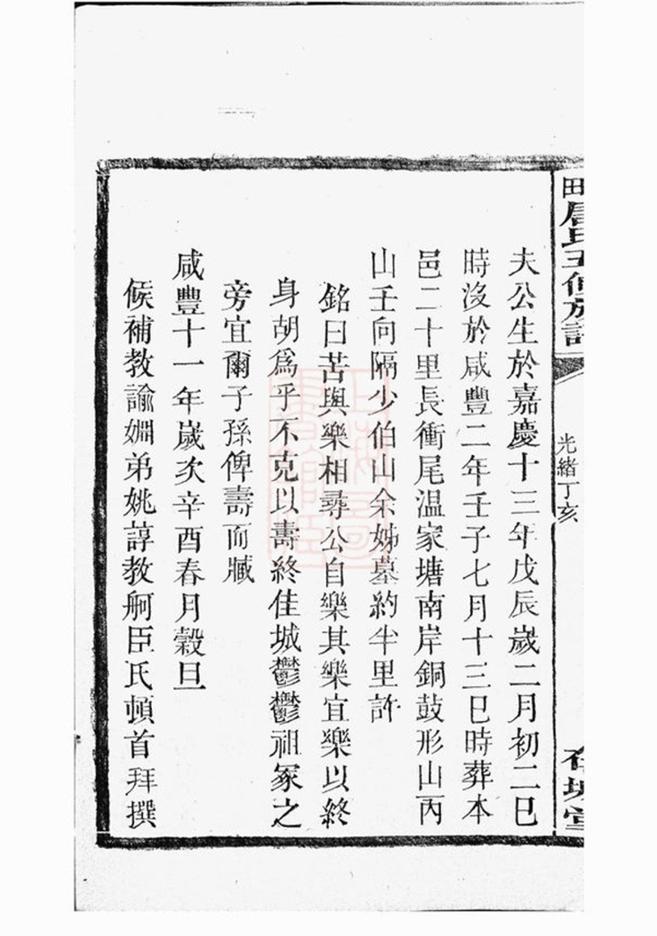 夫公生於嘉慶十三年戊辰歲二月初二巳
時沒於咸豐二年壬子七月十三巳時葬本
邑二十里長衝尾温家塘南岸銅鼓形山丙
山壬向隔少伯山余姊墓約半里許
銘曰苦與樂相尋公自樂其樂宜樂以終
身胡爲乎不克以壽終佳城鬱鬱祖冢之
旁宜爾子孫俾壽而臧
咸豐十一年歲次辛酉春月穀旦
候補教諭婣弟姚諄教舸臣氏頓首拜撰
光緒丁亥